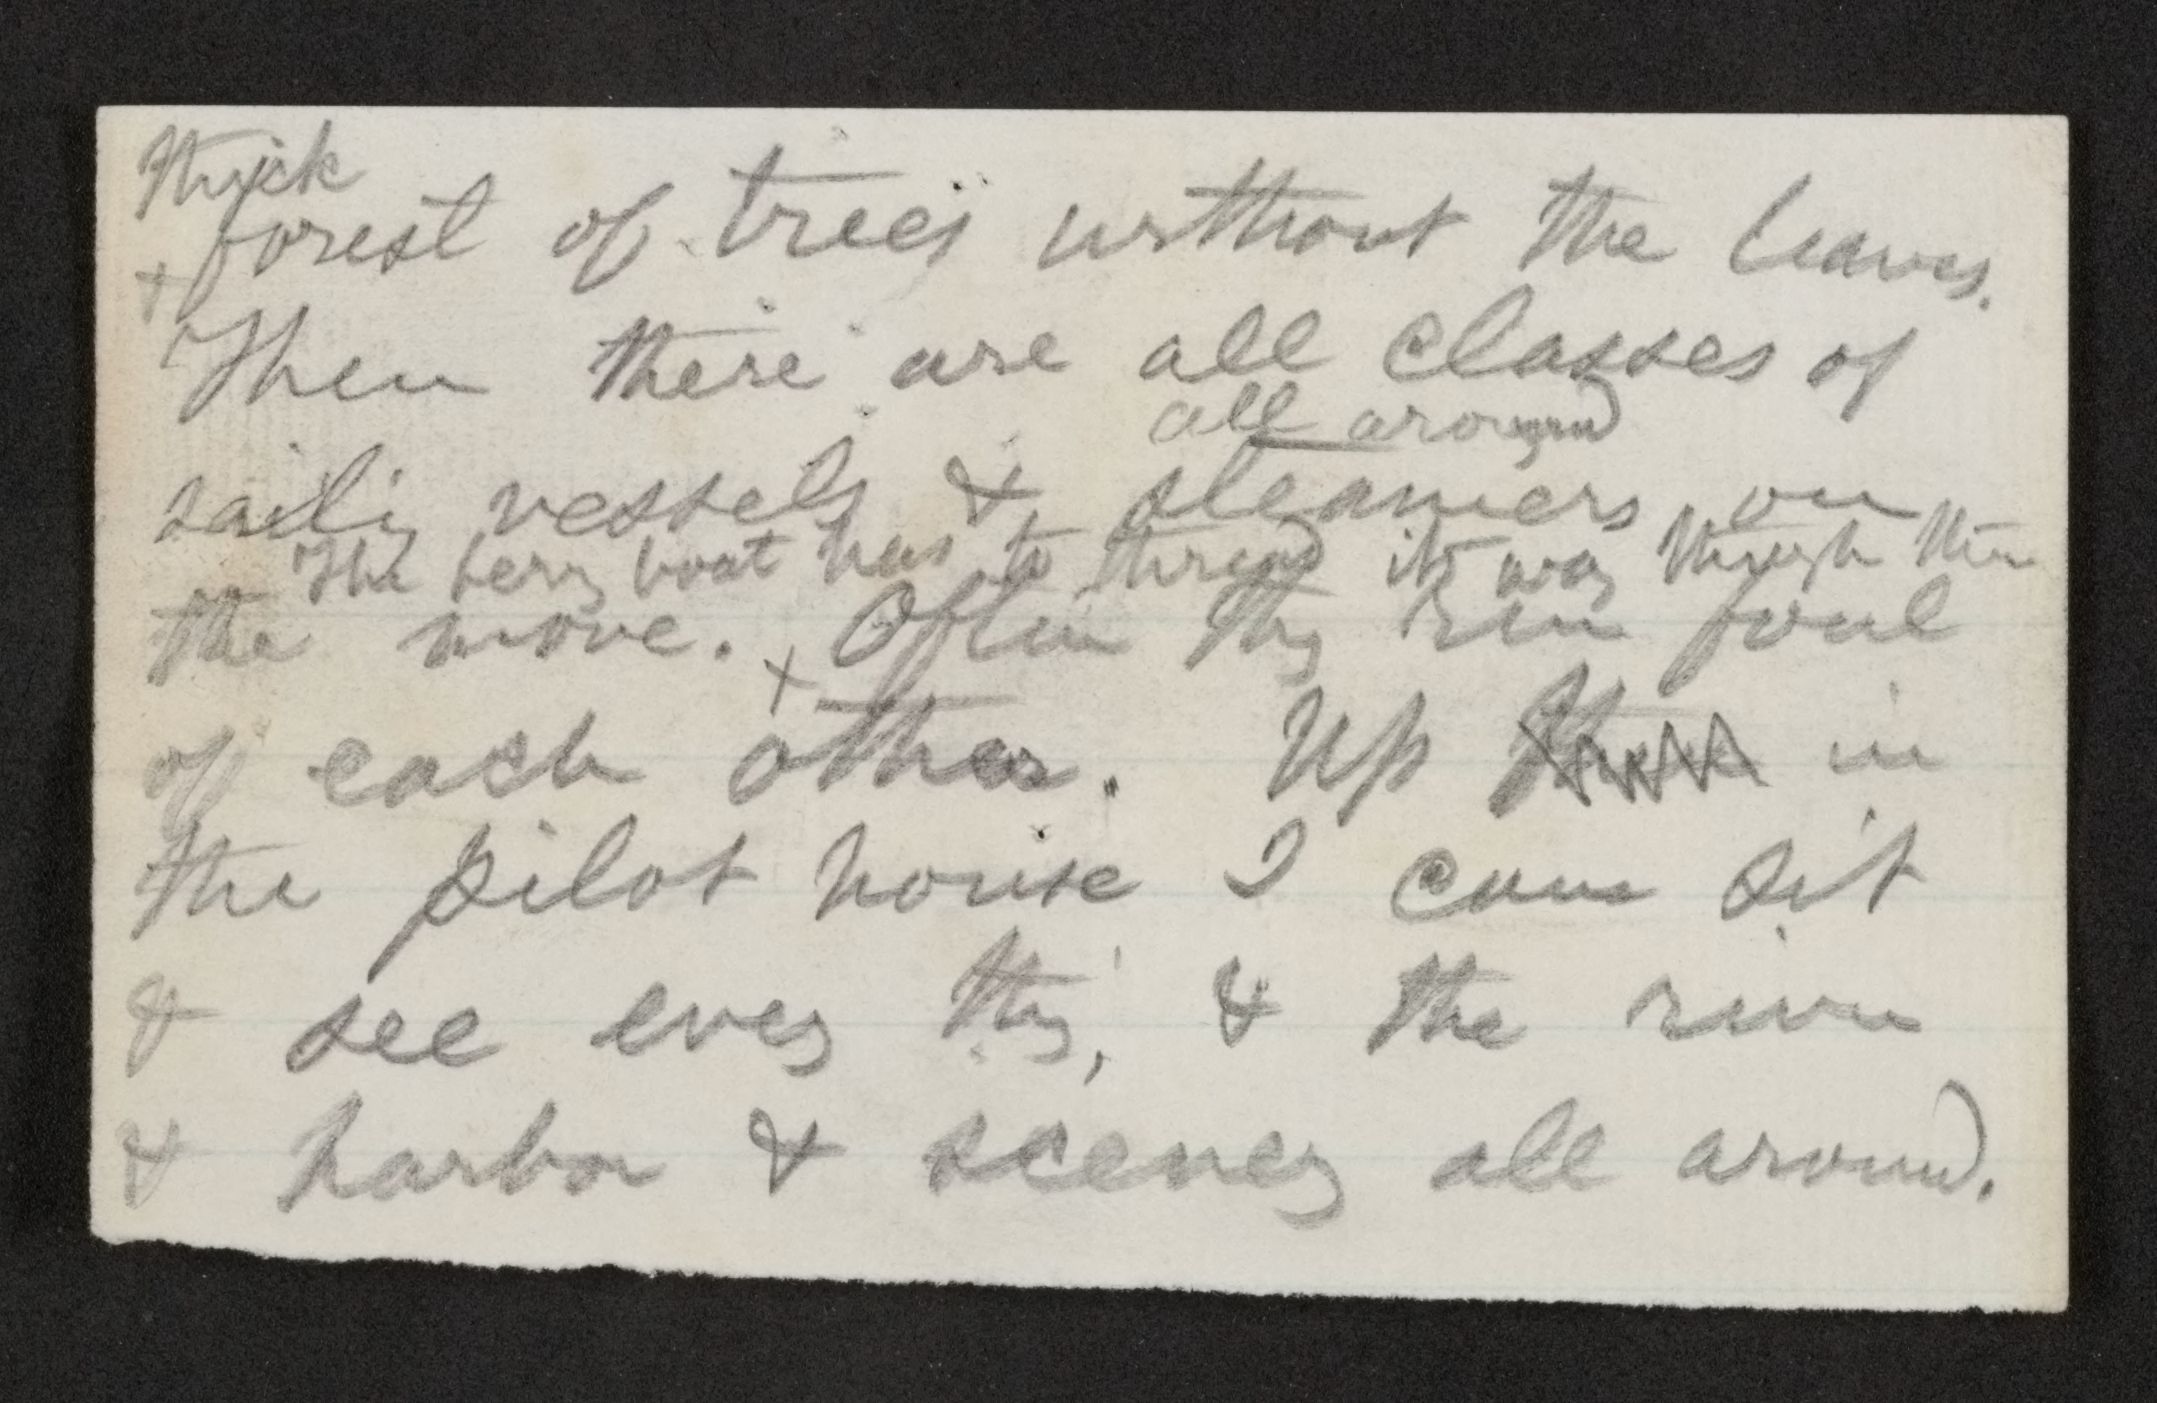 thick
forest of trees without the leaves.
+
Then there are all classes of
all around
sailing vessels & steamers on
The ferry boat has to thread its way through them
the move. + Often they run foul
of each other. Up in
the pilot house I can sit
& see every thing, & the river
& harbor & scenery all around.